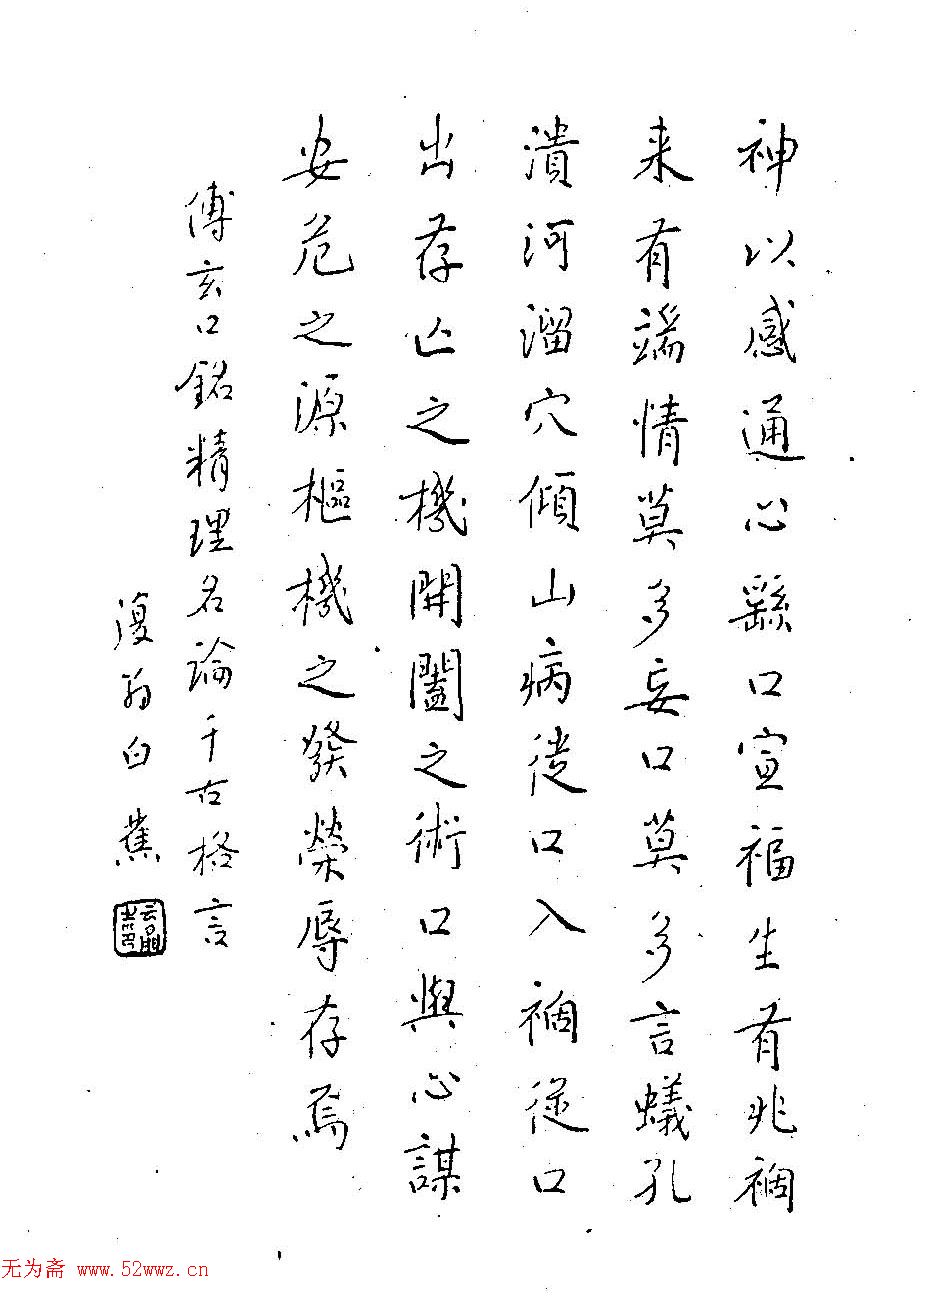 神以感通心繇口宣福生有兆禍
来有端情莫多妄口莫多言蟻孔
潰河溜穴傾山病從口入禍從口
出存亡之機開闔之術口與心謀
安危之源樞機之發榮辱存焉
傅玄口銘精理名論千古格言
復翁白蕉
无为斋 www.52wwz.cn